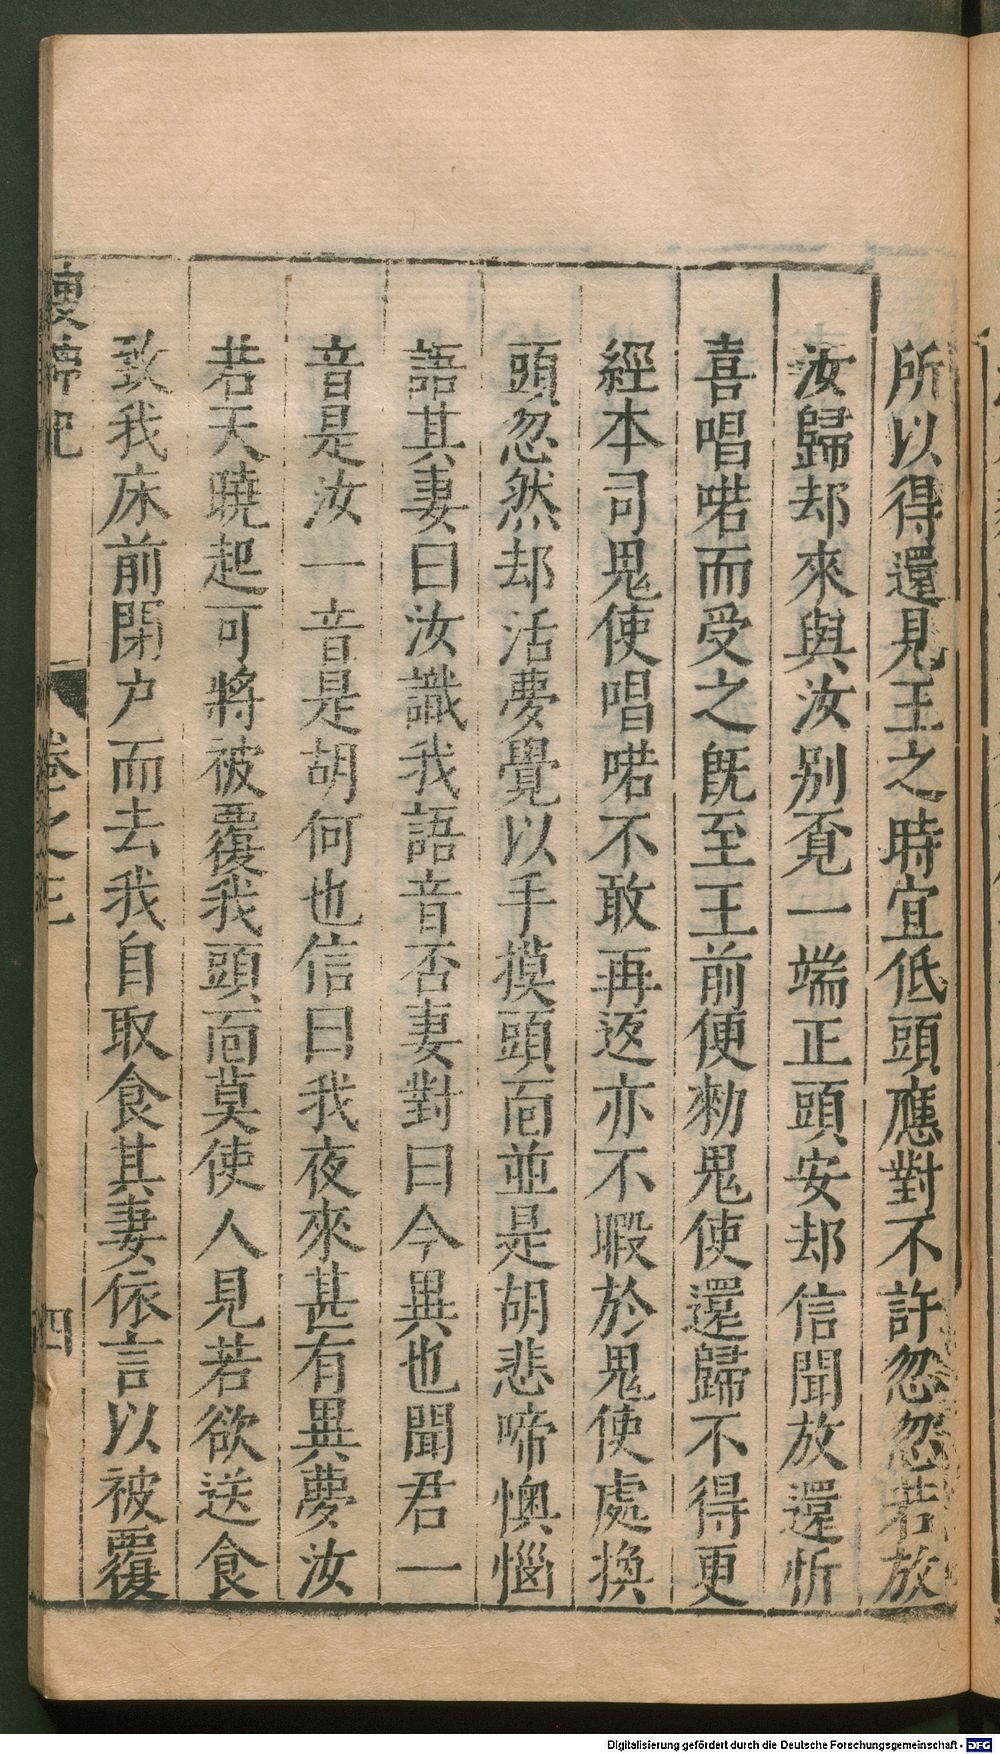 所以得還見王之時宜低頭應對不許忽忽若放
汝歸却來與汝别覔一端正頭安却信聞放還忻
喜唱喏而受之旣至王前便勑鬼使還歸不得更
經本司鬼使唱喏不敢再返亦不暇於鬼使處換
頭忽然却活夢覺以手摸頭面並是胡悲啼懊惱
語其妻曰汝識我語音否妻對曰今異也聞君一
音是汝一音是胡何也信曰我夜來甚有異夢汝
若天曉起可將被覆我頭面莫使人見若欲送食
致我床前閉户而去我自取食其妻依言以被覆
卷之三
四
Digitalisierung gefördert durch die Deutsche Forschungsgemeinschaft - DFG